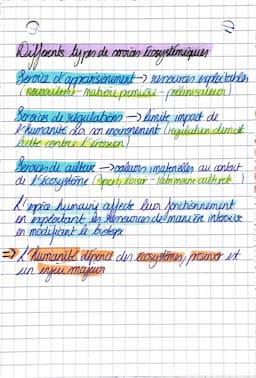 Différents types de services Écosystémiques
Service d'approvisionnement → ressources exploitables
(nourriture - matière première - pollinisation)
Services de régulations → limite impact de
l'humanité de son environnement (régulation climat
lutte contre l'érosion)
Services de culture → valeurs matérielles au contact
de l'écosystème (sport, loisir - patrimoine culturel)
L'espèce humaine affecte leur fonctionnement
en exploitant les ressources de manière intensive
en modifiant le biotope
⇒ L'humanité dépend des écosystèmes, préserver est
un enjeu majeur